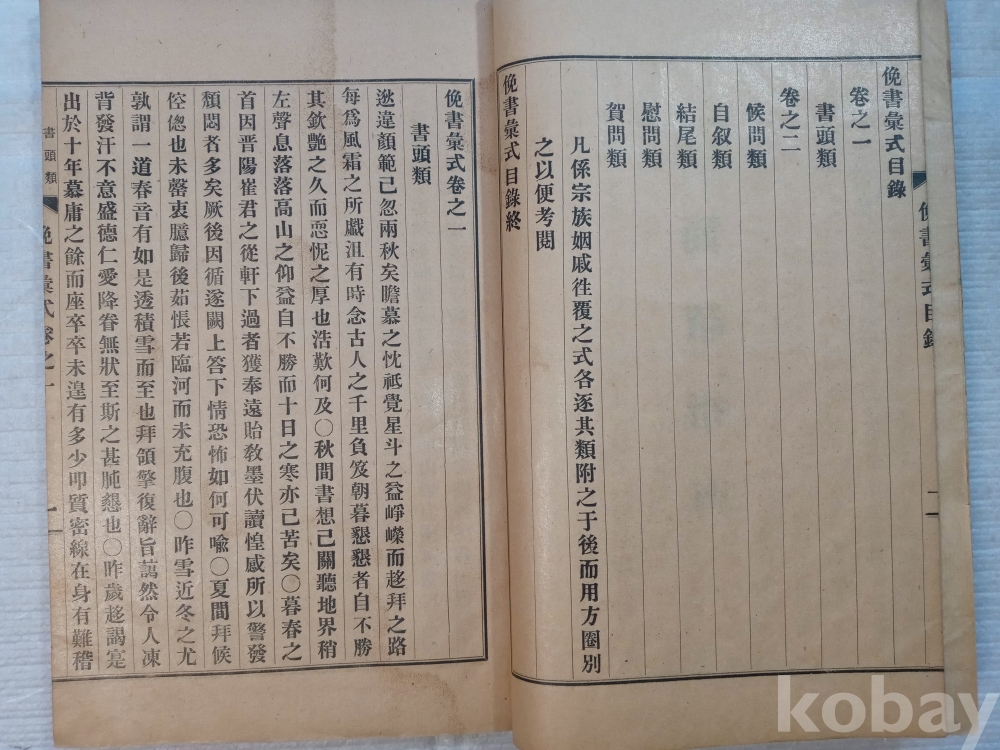 俛書彙式目錄
俛書彙式目錄
卷之一
書頭類
卷之二
候問類
自叙類
結尾類
慰問類
賀問類
凡係宗族姻戚徃覆之式各逐其類附之于後而用方圈別
之以便考閱
俛書彙式目錄終
二
俛書彙式卷之一
書頭類
逖違顔範已忽兩秋矣瞻慕之忱祗覺星斗之益崢嶸而趍拜之路
每爲風霜之所戱沮有時念古人之千里負笈朝暮懇懇者自不勝
其欽艶之久而恧怩之厚也浩歎何及〇秋間書想已關聽地界稍
左聲息落落高山之仰益自不勝而十日之寒亦已苦矣〇暮春之
首因晋陽崔君之從軒下過者獲奉遠貽敎墨伏讀惶感所以警發
頽悶者多矣厥後因循遂闕上答下情恐怖如何可喩〇夏間拜候
倥偬也未罄衷臆歸後茹悵若臨河而未充腹也〇昨雪近冬之尤
孰謂一道春音有如是透積雪而至也拜領擎復辭旨藹然令人凍
背發汗不意盛德仁愛降眷無狀至斯之甚肫懇也〇昨歲趍謁寔
出於十年慕庸之餘而座卒卒未遑有多少叩質密線在身有難稽
書頭類
俛書彙式卷之一
一
kobay